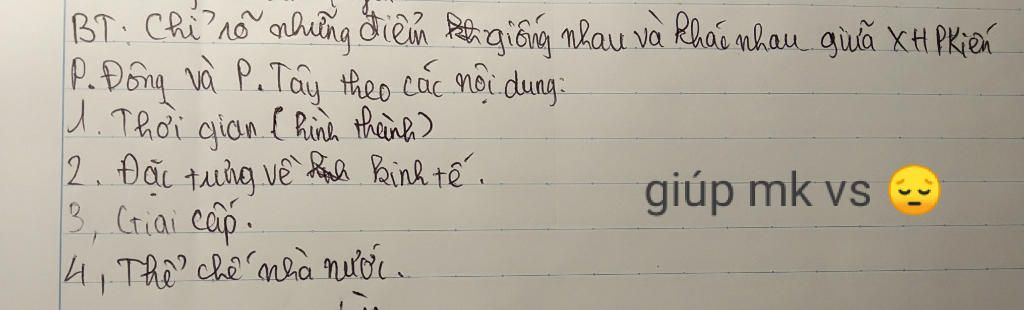 BT: Chỉ rõ những điểm giống nhau và khác nhau giữa XHPKiến
P. Đông và P. Tây theo các nội dung:
1. Thời gian (hình thành)
2. Đặc trưng về kinh tế.
giúp mk vs 😔
3, Giai cấp.
4, Thể chế nhà nước.